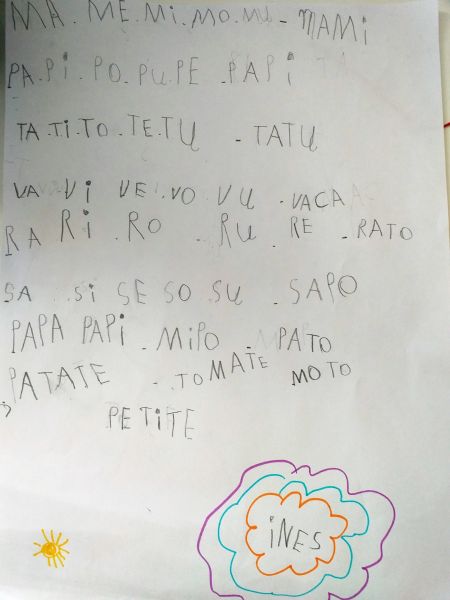 MA.ME.Mi.MO.MU - MAMi
PA.Pi.PO.PU.PE.PAPi
TA.Ti.TO.TE.TU - TATU
VA Vi VE.VO VU.VACA
RA Ri.RO.RU.RE.RATO
SA.Si SE SO.SU.SAPO
PAPA PAPi.MiPO.PATO
PATATE -.TOMATE MOTO
PETiTE
iNES